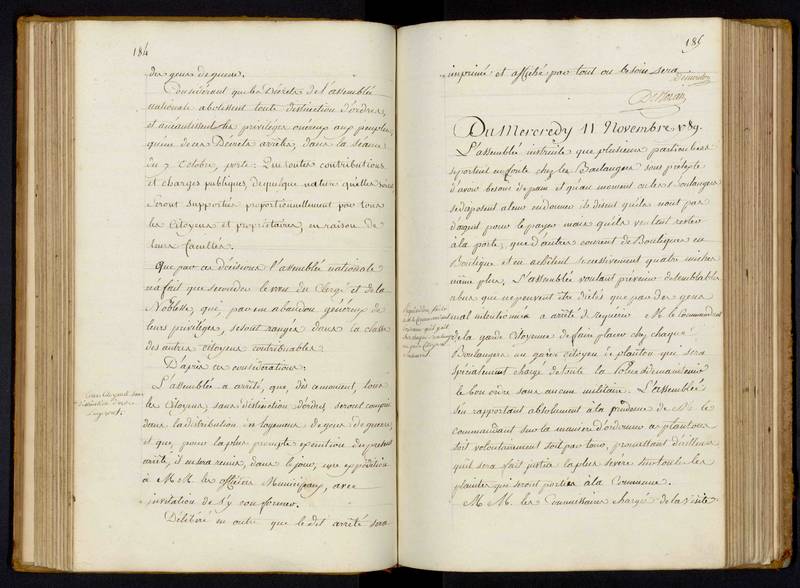 184
des gens de guerre.
Considérant que les Décrets de l'assemblée
nationale abolissent toute distinction d'ordres,
et anéantissent les privilèges onéreux aux peuples,
qu'un de ces Decrets arrêté, dans la séance
du 7 octobre, porte: Que toutes contributions
et charges publiques, de quelque nature qu'elles soient
seront supportées proportionnellement par tous
les Citoyens et propriétaires, en raison de
leurs facultés.
Que par ce décision l'assemblée nationale
n'a fait que seconder le vœu du Clergé et de la
Noblesse, qui, par un abandon généreux de
leurs privilèges, se sont rangés dans la classe
des autres citoyens contribuables.
D'après ces considérations
L'assemblée a arrêté, que, dès ce moment, tous
les Citoyens, sans distinction d'ordres seront compris
dans la distribution des logemens de gens de guerre,
et que, pour la plus prompte exécution du présent
arrêté, il en sera remis, dans le jour, une expédition
à MM. les officiers Municipaux, avec
invitation de s'y conformer.
Délibéré en outre que le dit arrêté sera
185
imprimé et affiché par tout ou besoin sera
Du Mercredy 11 Novembre 1789.
L'assemblée instruite que plusieurs particuliers
se portent en foule chez les Boulangers sous prétexte
d'avoir besoin de pain et qu'au moment ou les Boulangers
se disposent a leur en donner ils disent qu'ils n'ont pas
d'argent pour le payer mais qu'ils veulent rester
à la porte, que d'autres courent de Boutiques en
Boutique et en achètent successivement quatre miches
même plus, L'assemblée voulant prévenir de semblables
abus qui ne peuvent être dictés que par des gens
mal intentionnés a arrêté de requérir M. le commandant
de la garde Citoyenne de faire placer chez chaque
Boulanger un garde citoyen de planton qui sera
spécialement chargé de
le bon ordre sans aucun militaire. L'assemblée
s'en rapportant absolument à la prudence de M. le
commandant sur la manière d'ordonner ces plantons
soit volontairement soit par tour, promettant d'ailleurs
qu'il sera fait justice la plus sévère sur toutes les
plaintes qui seront portées à la Commune.
M. M. les Commissaires chargés de la visite